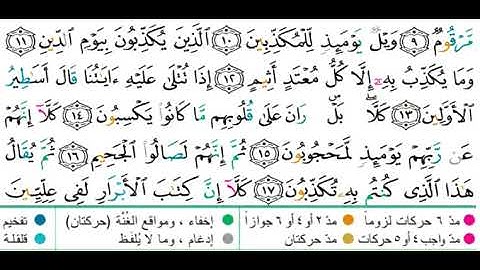 مَّرْقُومٌ ﴿٩﴾ وَيْلٌ يَوْمَئِذٍ لِّلْمُكَذِّبِينَ ﴿١٠﴾ ٱلَّذِينَ يُكَذِّبُونَ بِيَوْمِ ٱلدِّينِ ﴿١١﴾
وَمَا يُكَذِّبُ بِهِۦٓ إِلَّا كُلُّ مُعْتَدٍ أَثِيمٍ ﴿١٢﴾ إِذَا تُتْلَىٰ عَلَيْهِ ءَايَٰتُنَا قَالَ أَسَٰطِيرُ
ٱلْأَوَّلِينَ ﴿١٣﴾ كَلَّا ۖ بَلْ ۜ رَانَ عَلَىٰ قُلُوبِهِم مَّا كَانُوا۟ يَكْسِبُونَ ﴿١٤﴾ كَلَّآ إِنَّهُمْ
عَن رَّبِّهِمْ يَوْمَئِذٍ لَّمَحْجُوبُونَ ﴿١٥﴾ ثُمَّ إِنَّهُمْ لَصَالُوا۟ ٱلْجَحِيمِ ﴿١٦﴾ ثُمَّ يُقَالُ
هَٰذَا ٱلَّذِى كُنتُم بِهِۦ تُكَذِّبُونَ ﴿١٧﴾ كَلَّآ إِنَّ كِتَٰبَ ٱلْأَبْرَارِ لَفِى عِلِّيِّينَ
مدّ ٦ حركات لزوماً مدّ ٢ أو ٤ أو ٦ جوازاً إخفاء ، ومواقع الغُنَّة (حركتان) تفخيم
مدّ واجب ٤ أو ٥ حركات مدّ حركتان إدغام ، وما لا يُلفَظ قلقلة